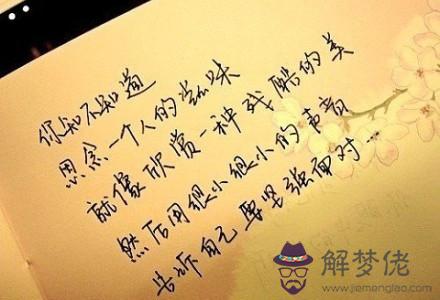 你知不知道
思念一个人的滋味
就像欣赏一种残酷的美
然后用很小很小的声音
告诉自己要坚强面对…
解梦佬
www.jiemenglao.com